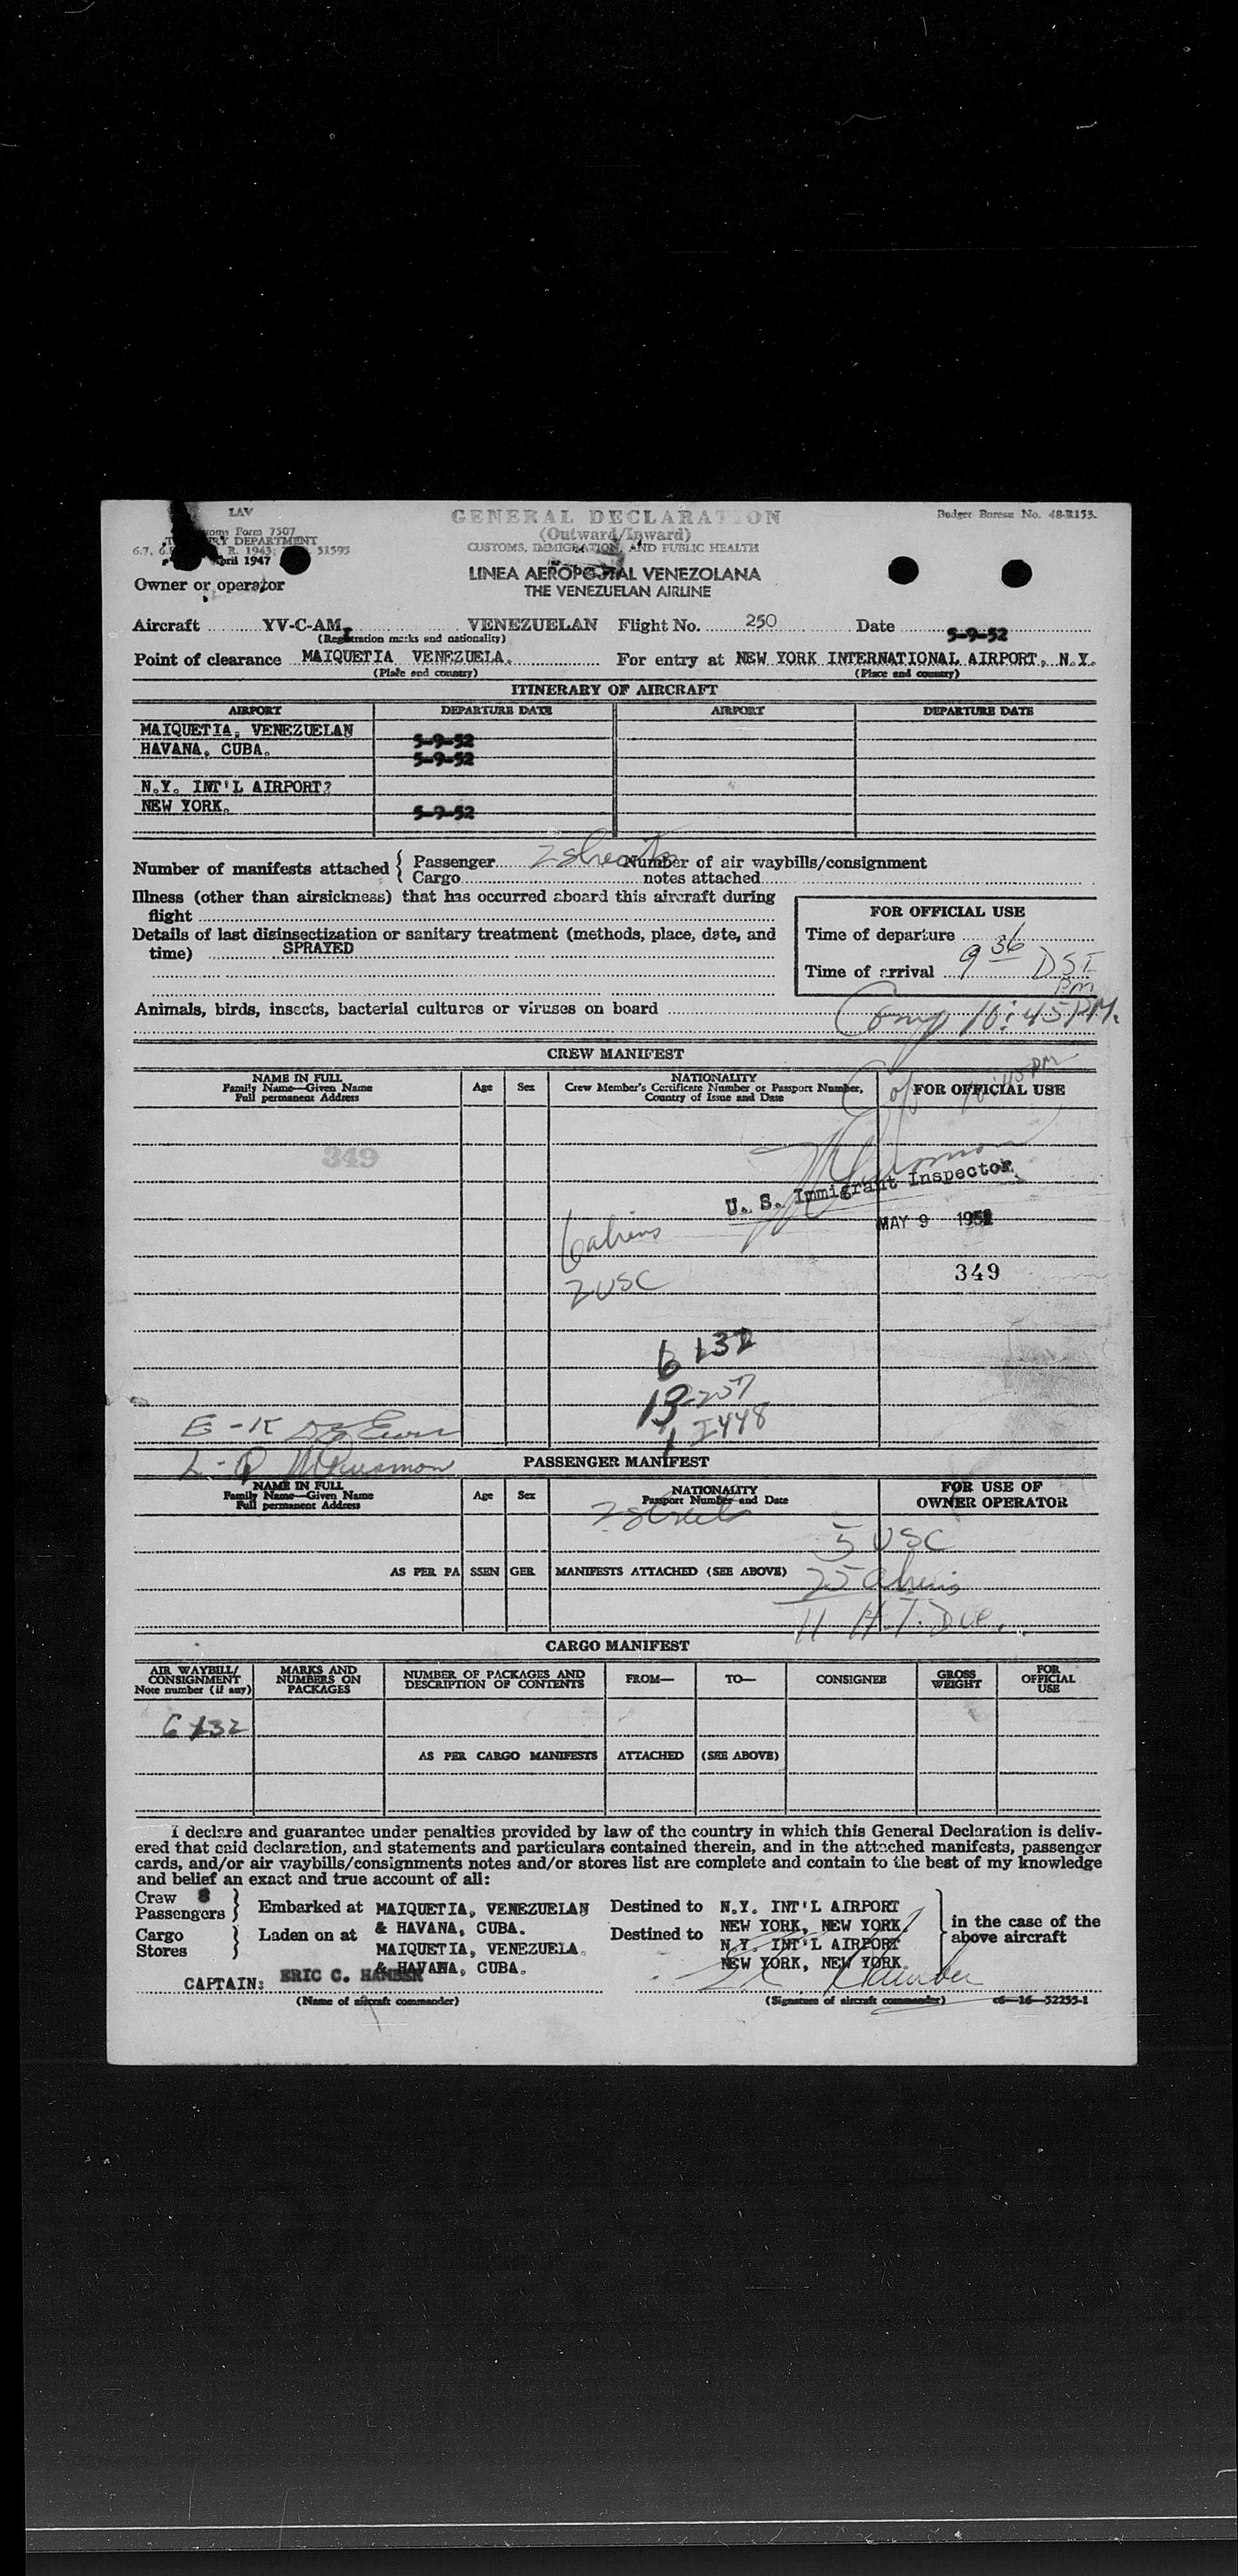 LAV
GENERAL DECLARATION
Budget Bureau No. 48-R153.
Customs Form 7507
TREASURY DEPARTMENT
(Outward/Inward)
CUSTOMS, IMMIGRATION, AND PUBLIC HEALTH
R. 1943; 51595
April 1947
LINEA AEROPOSTAL VENEZOLANA
THE VENEZUELAN AIRLINE
Owner or operator
Aircraft YV-C-AM VENEZUELAN Flight No. 250 Date 5-9-52
(Registration marks and nationality)
Point of clearance MAIQUETIA VENEZUELA. For entry at NEW YORK INTERNATIONAL AIRPORT, N.Y.
(Place and country) (Place and country)
ITINERARY OF AIRCRAFT
AIRPORT DEPARTURE DATE AIRPORT DEPARTURE DATE
MAIQUETIA, VENEZUELAN 5-9-52
HAVANA, CUBA. 5-9-52
N.Y. INT'L AIRPORT?
NEW YORK. 5-9-52
Number of manifests attached { Passenger 2 sheets Number of air waybills/consignment
Cargo notes attached
Illness (other than airsickness) that has occurred aboard this aircraft during
flight
FOR OFFICIAL USE
Details of last disinsectization or sanitary treatment (methods, place, date, and
time) SPRAYED
Time of departure
Time of arrival 9 36 DST
PM
Animals, birds, insects, bacterial cultures or viruses on board
Comp 10:45 PM.
CREW MANIFEST
NAME IN FULL
Family Name—Given Name
Full permanent Address
Age Sex
NATIONALITY
Crew Member's Certificate Number or Passport Number,
Country of Issue and Date
FOR OFFICIAL USE
349
U. S. Immigrant Inspector
MAY 9 1952
6 aliens
349
2 USC
6 132
13-257
1 I448
E-K
L-Q
PASSENGER MANIFEST
NAME IN FULL
Family Name—Given Name
Full permanent Address
Age Sex
NATIONALITY
Passport Number and Date
FOR USE OF
OWNER OPERATOR
2 sheets
5 USC
AS PER PASSENGER MANIFESTS ATTACHED (SEE ABOVE)
25 aliens
11 H.T. Due.
CARGO MANIFEST
AIR WAYBILL/
CONSIGNMENT
Note number (if any)
MARKS AND
NUMBERS ON
PACKAGES
NUMBER OF PACKAGES AND
DESCRIPTION OF CONTENTS
FROM— TO— CONSIGNEE
GROSS
WEIGHT
FOR
OFFICIAL
USE
6 132
AS PER CARGO MANIFESTS ATTACHED (SEE ABOVE)
I declare and guarantee under penalties provided by law of the country in which this General Declaration is deliv-
ered that said declaration, and statements and particulars contained therein, and in the attached manifests, passenger
cards, and/or air waybills/consignments notes and/or stores list are complete and contain to the best of my knowledge
and belief an exact and true account of all:
Crew 8
Passengers } Embarked at MAIQUETIA, VENEZUELAN Destined to N.Y. INT'L AIRPORT
& HAVANA, CUBA. NEW YORK, NEW YORK.
Cargo
Stores } Laden on at MAIQUETIA, VENEZUELA. Destined to N.Y. INT'L AIRPORT
& HAVANA, CUBA. NEW YORK, NEW YORK.
in the case of the
above aircraft
CAPTAIN: ERIC C. HAMBER
(Name of aircraft commander) (Signature of aircraft commander) c6—16—52255-1